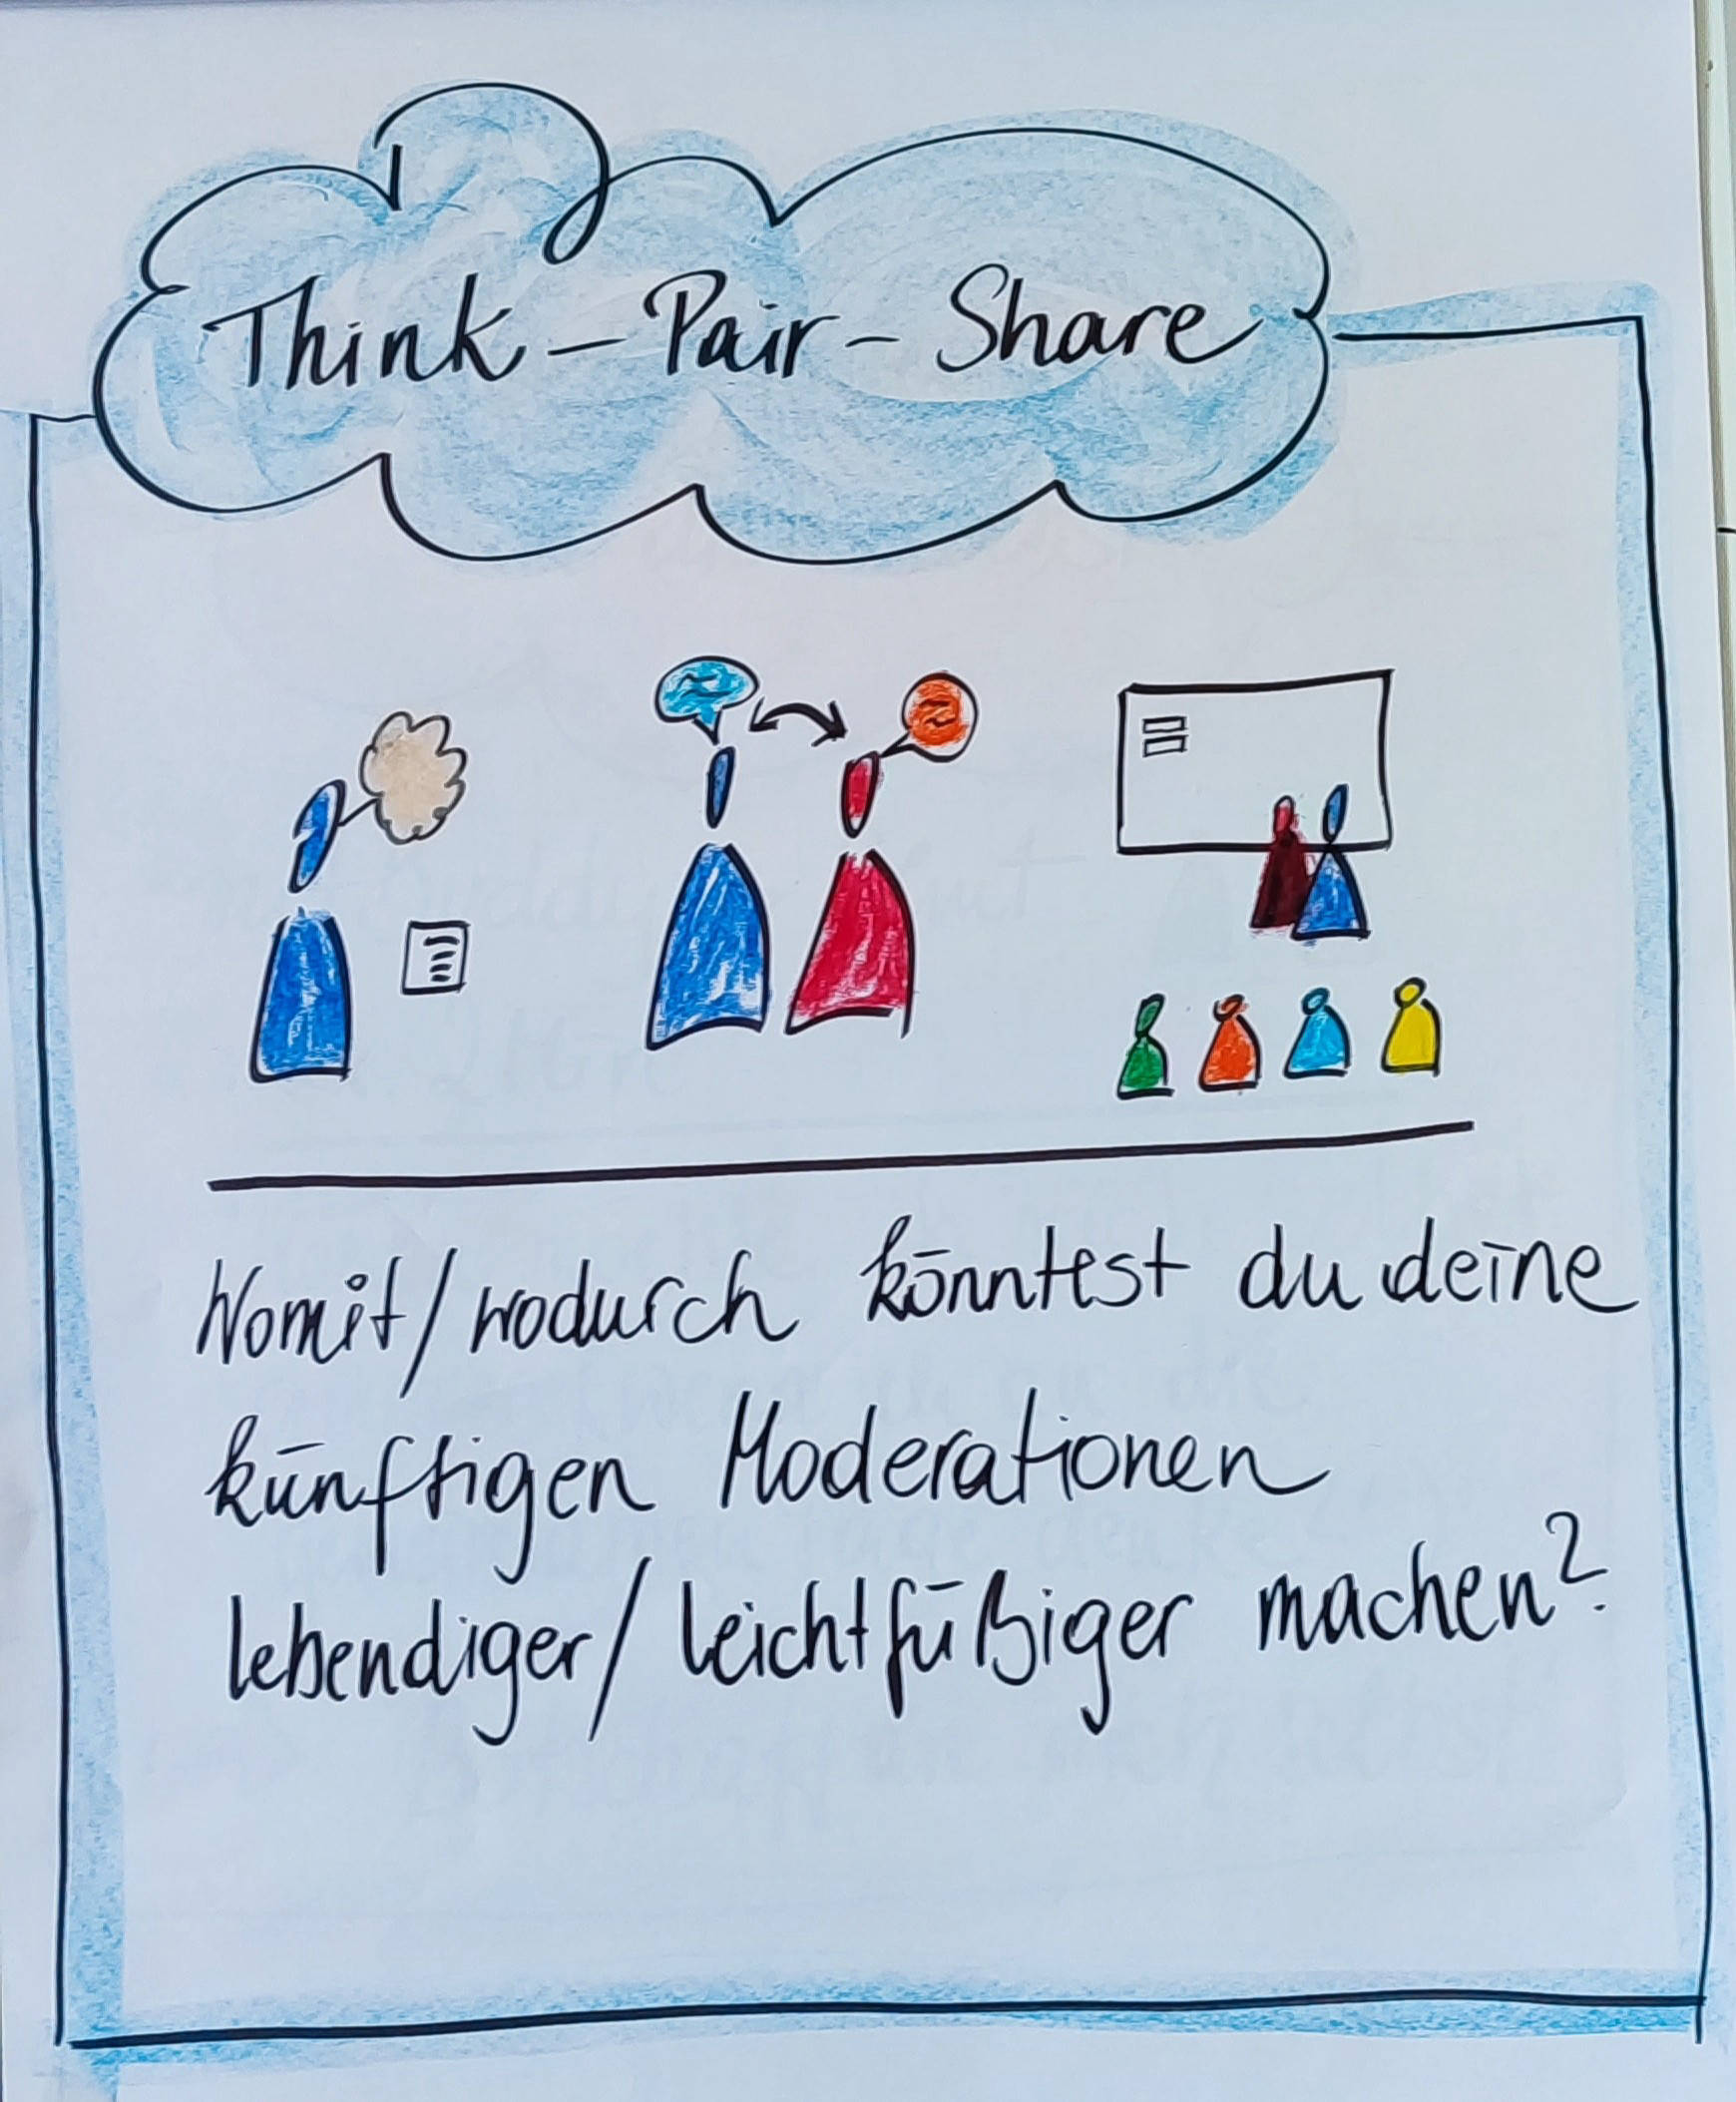 Think - Pair - Share
Womit/wodurch könntest du deine
künftigen Moderationen
lebendiger/leichtfüßiger machen?